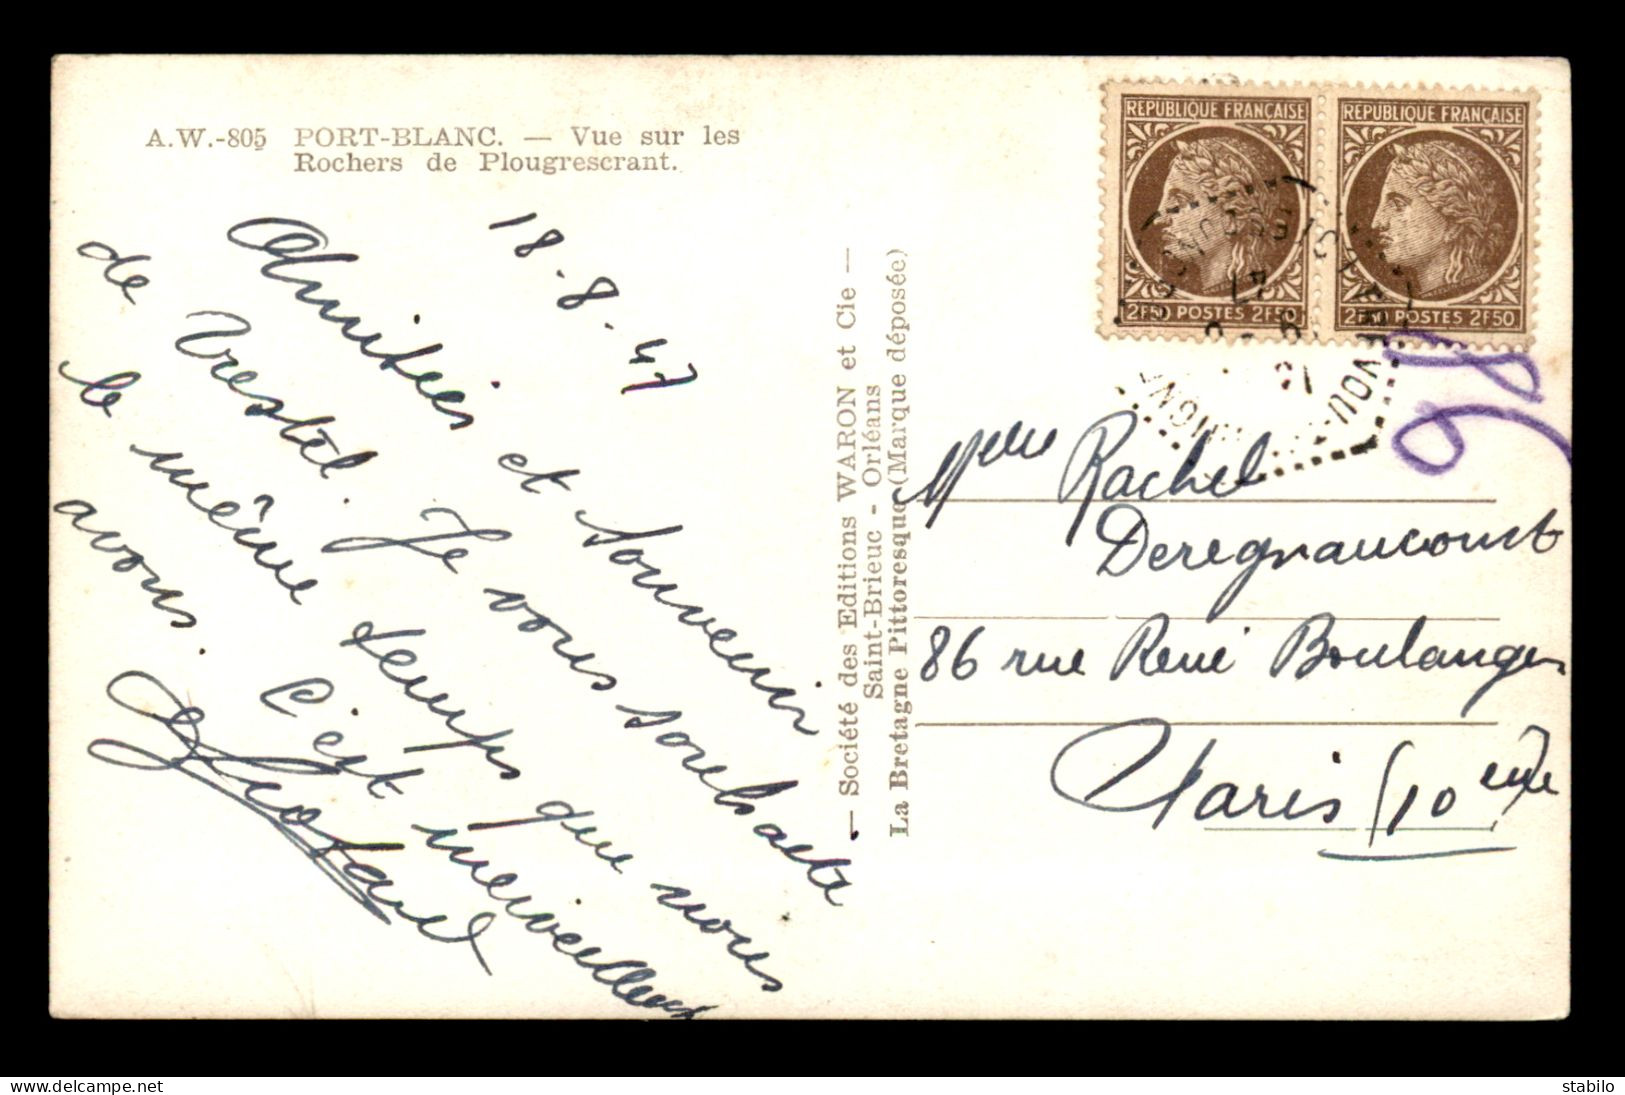 A.W.-805 PORT-BLANC. — Vue sur les
Rochers de Plougrescrant.
18-8-47
Amitiés et souvenir
de Trestel. Je vous souhaite
le même temps que nous
avons. C'est merveilleux
— Société des Editions WARON et Cie —
Saint-Brieuc - Orléans
La Bretagne Pittoresque (Marque déposée)
REPUBLIQUE FRANÇAISE
2F50 POSTES 2F50
REPUBLIQUE FRANÇAISE
2F50 POSTES 2F50
86
Melle Rachel
Deregnaucourt
86 rue René Boulanger
Paris (10eme)
stabilo
Delcampe.net